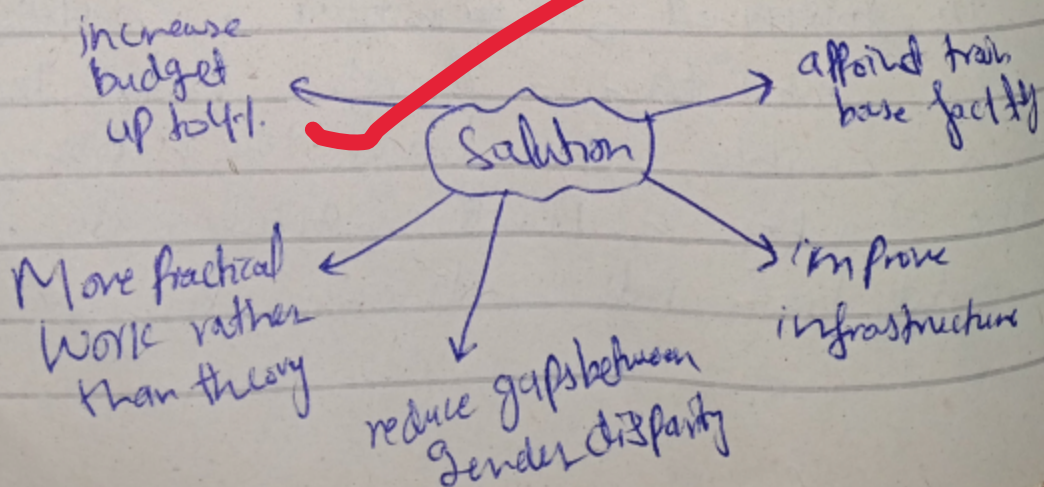 increase
budget
up to 4%.
Solution
appoint train
base faclty
More practical
work rather
than theory
reduce gaps between
gender disparity
improve
infrastructure